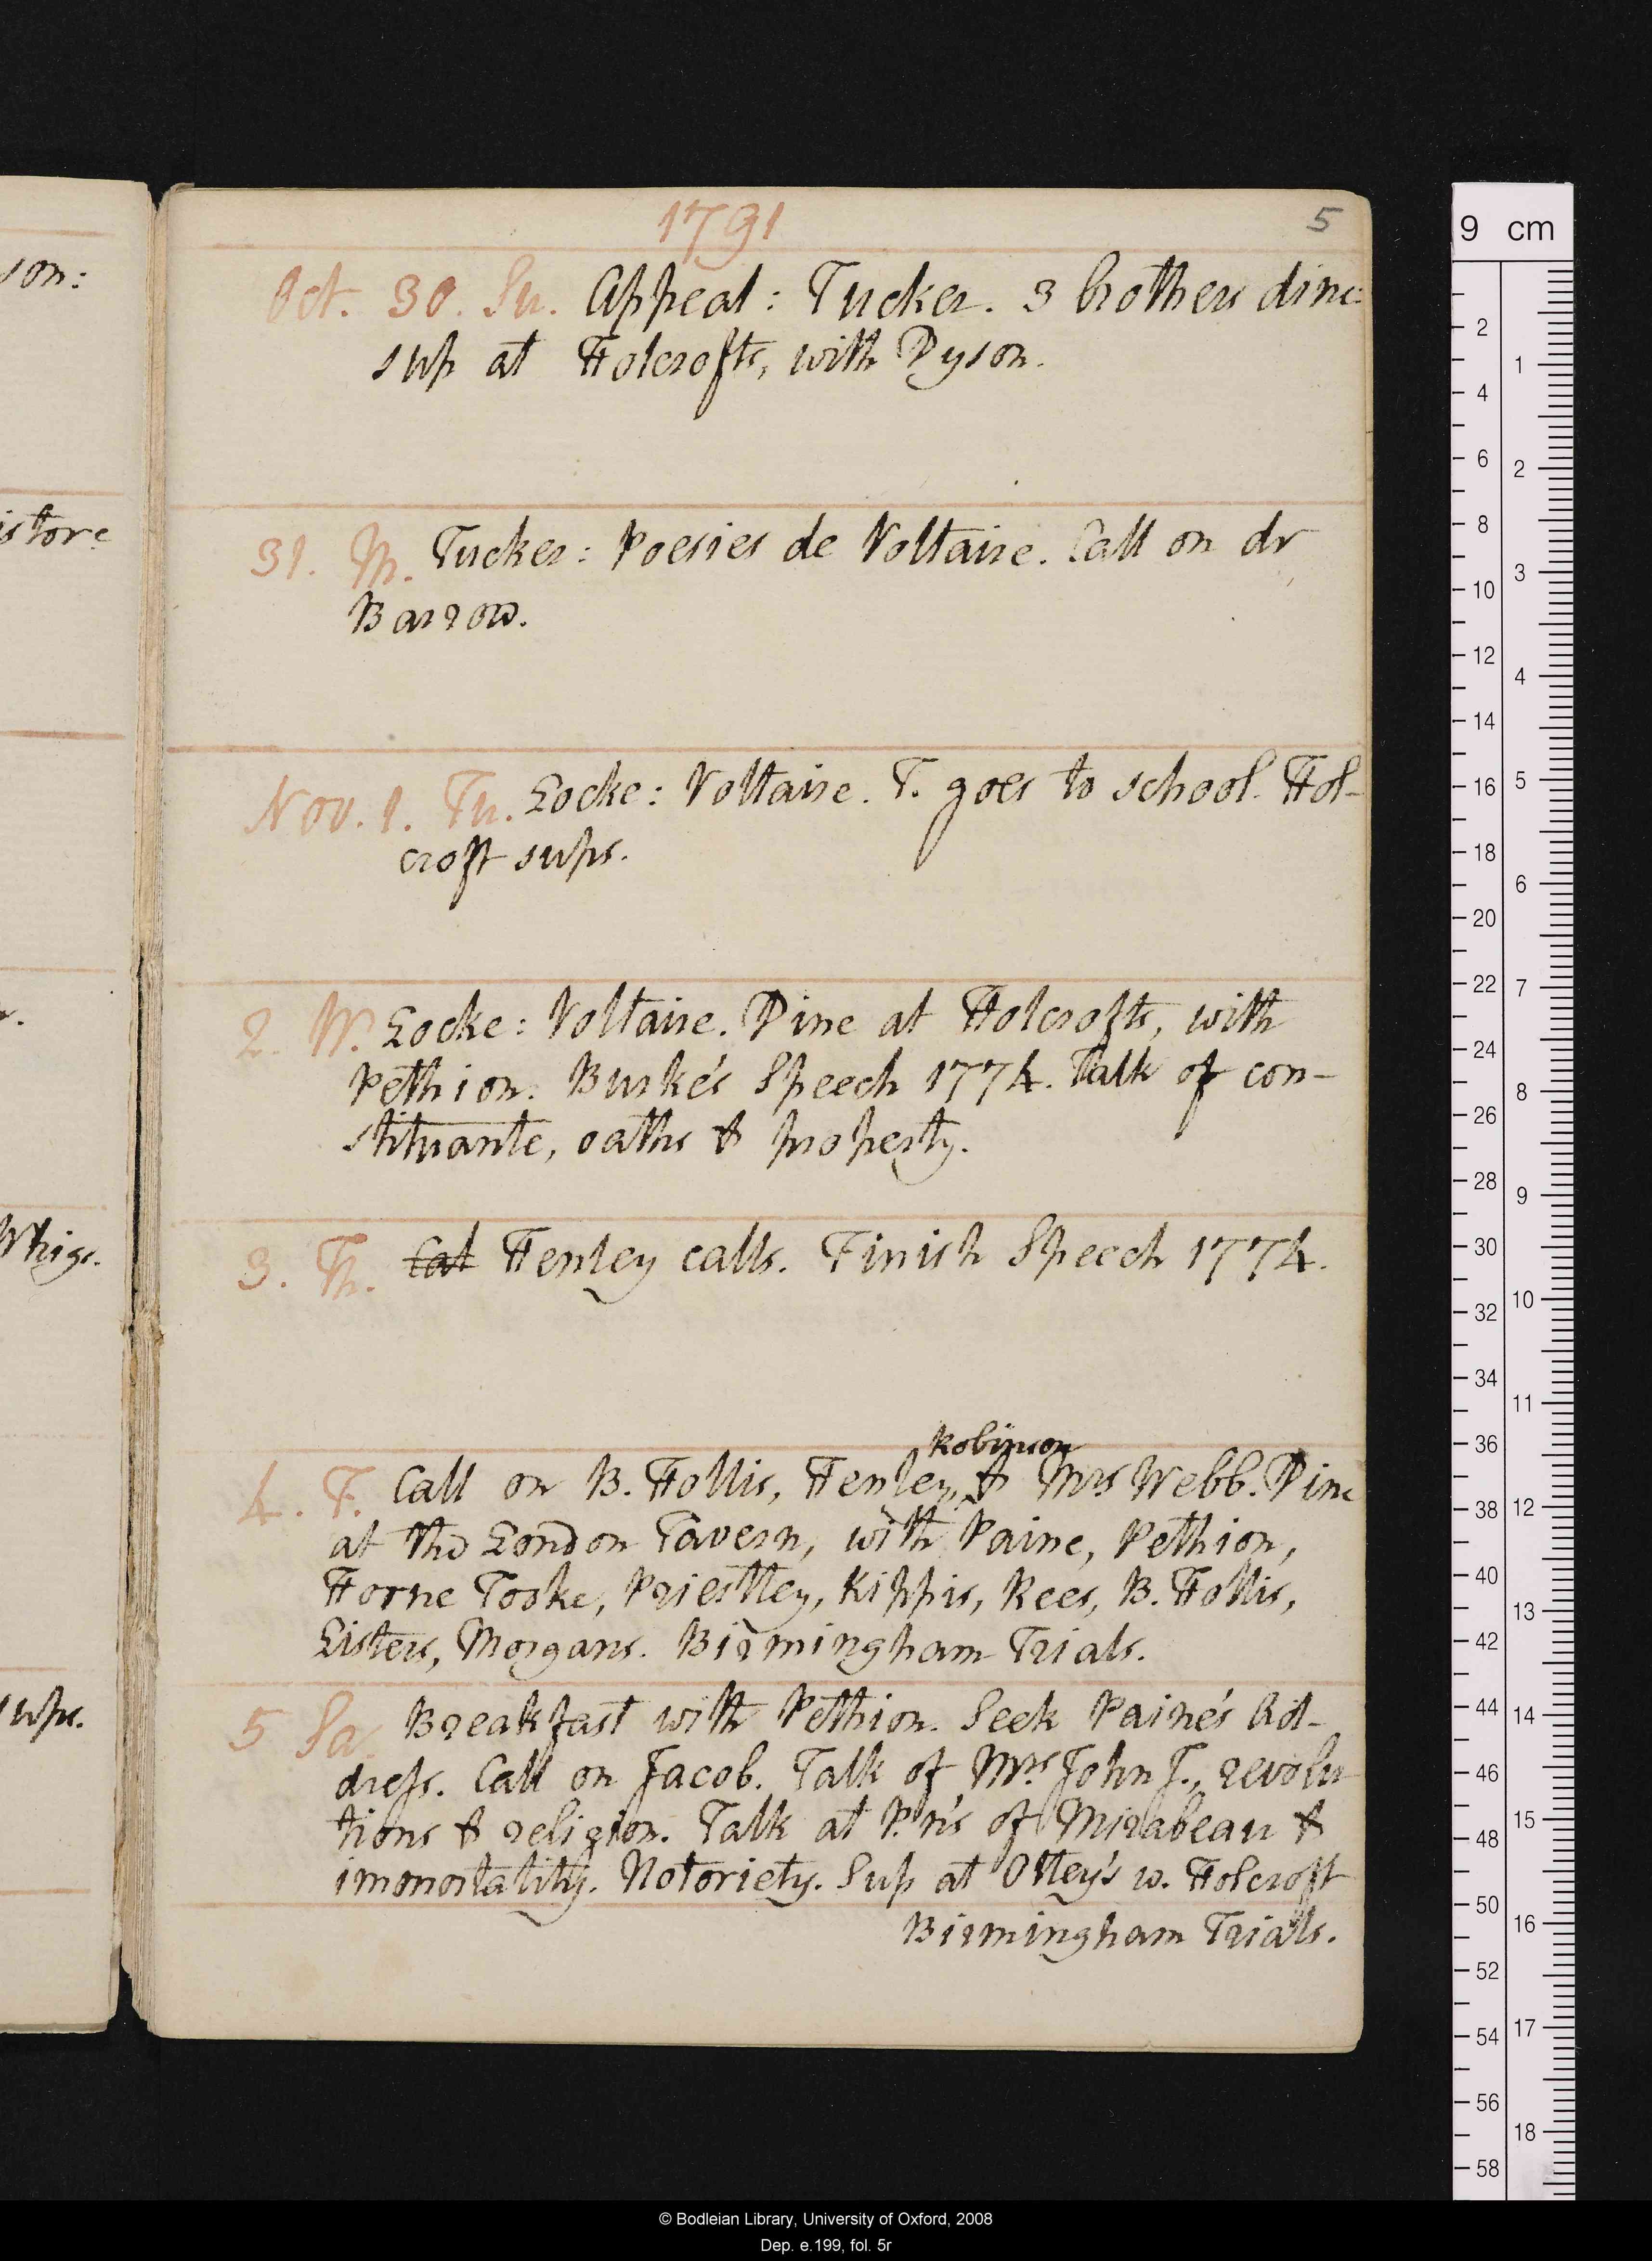 1791
5
Oct. 30. Su. Appeal: Tucker. 3 brothers dine:
sup at Holcrofts, with Dyson.
31. M. Tucker: Poesies de Voltaire. Call on dr
Barrow.
Nov. 1. Tu. Locke: Voltaire. T. goes to school. Hol-
croft sups.
2. W. Locke: Voltaire. Dine at Holcrofts, with
Pethion. Burke's Speech 1774. Talk of con-
stituante, oaths & property.
3. Th. Cal Henley calls. Finish Speech 1774.
Robinson
4. F. Call on B. Hollis, Henley, & Mrs Webb. Dine
at the London Tavern, with Paine, Pethion,
Horne Tooke, Priestley, Kippis, Rees, B. Hollis,
Listers, Morgans. Birmingham Trials.
5 Sa. Breakfast with Pethion. Seek Paine's Ad-
dress. Call on Jacob. Talk of Mrs John J., revolu
tions & religion. Talk at P.'n's of Mirabeau &
immortality. Notoriety. Sup at Ottey's w. Holcroft
Birmingham Trials.
son:
istore
Whigs.
sups.
9 cm
2
4
6
8
10
12
14
16
18
20
22
24
26
28
30
32
34
36
38
40
42
44
46
48
50
52
54
56
58
1
2
3
4
5
6
7
8
9
10
11
12
13
14
15
16
17
18
© Bodleian Library, University of Oxford, 2008
Dep. e.199, fol. 5r